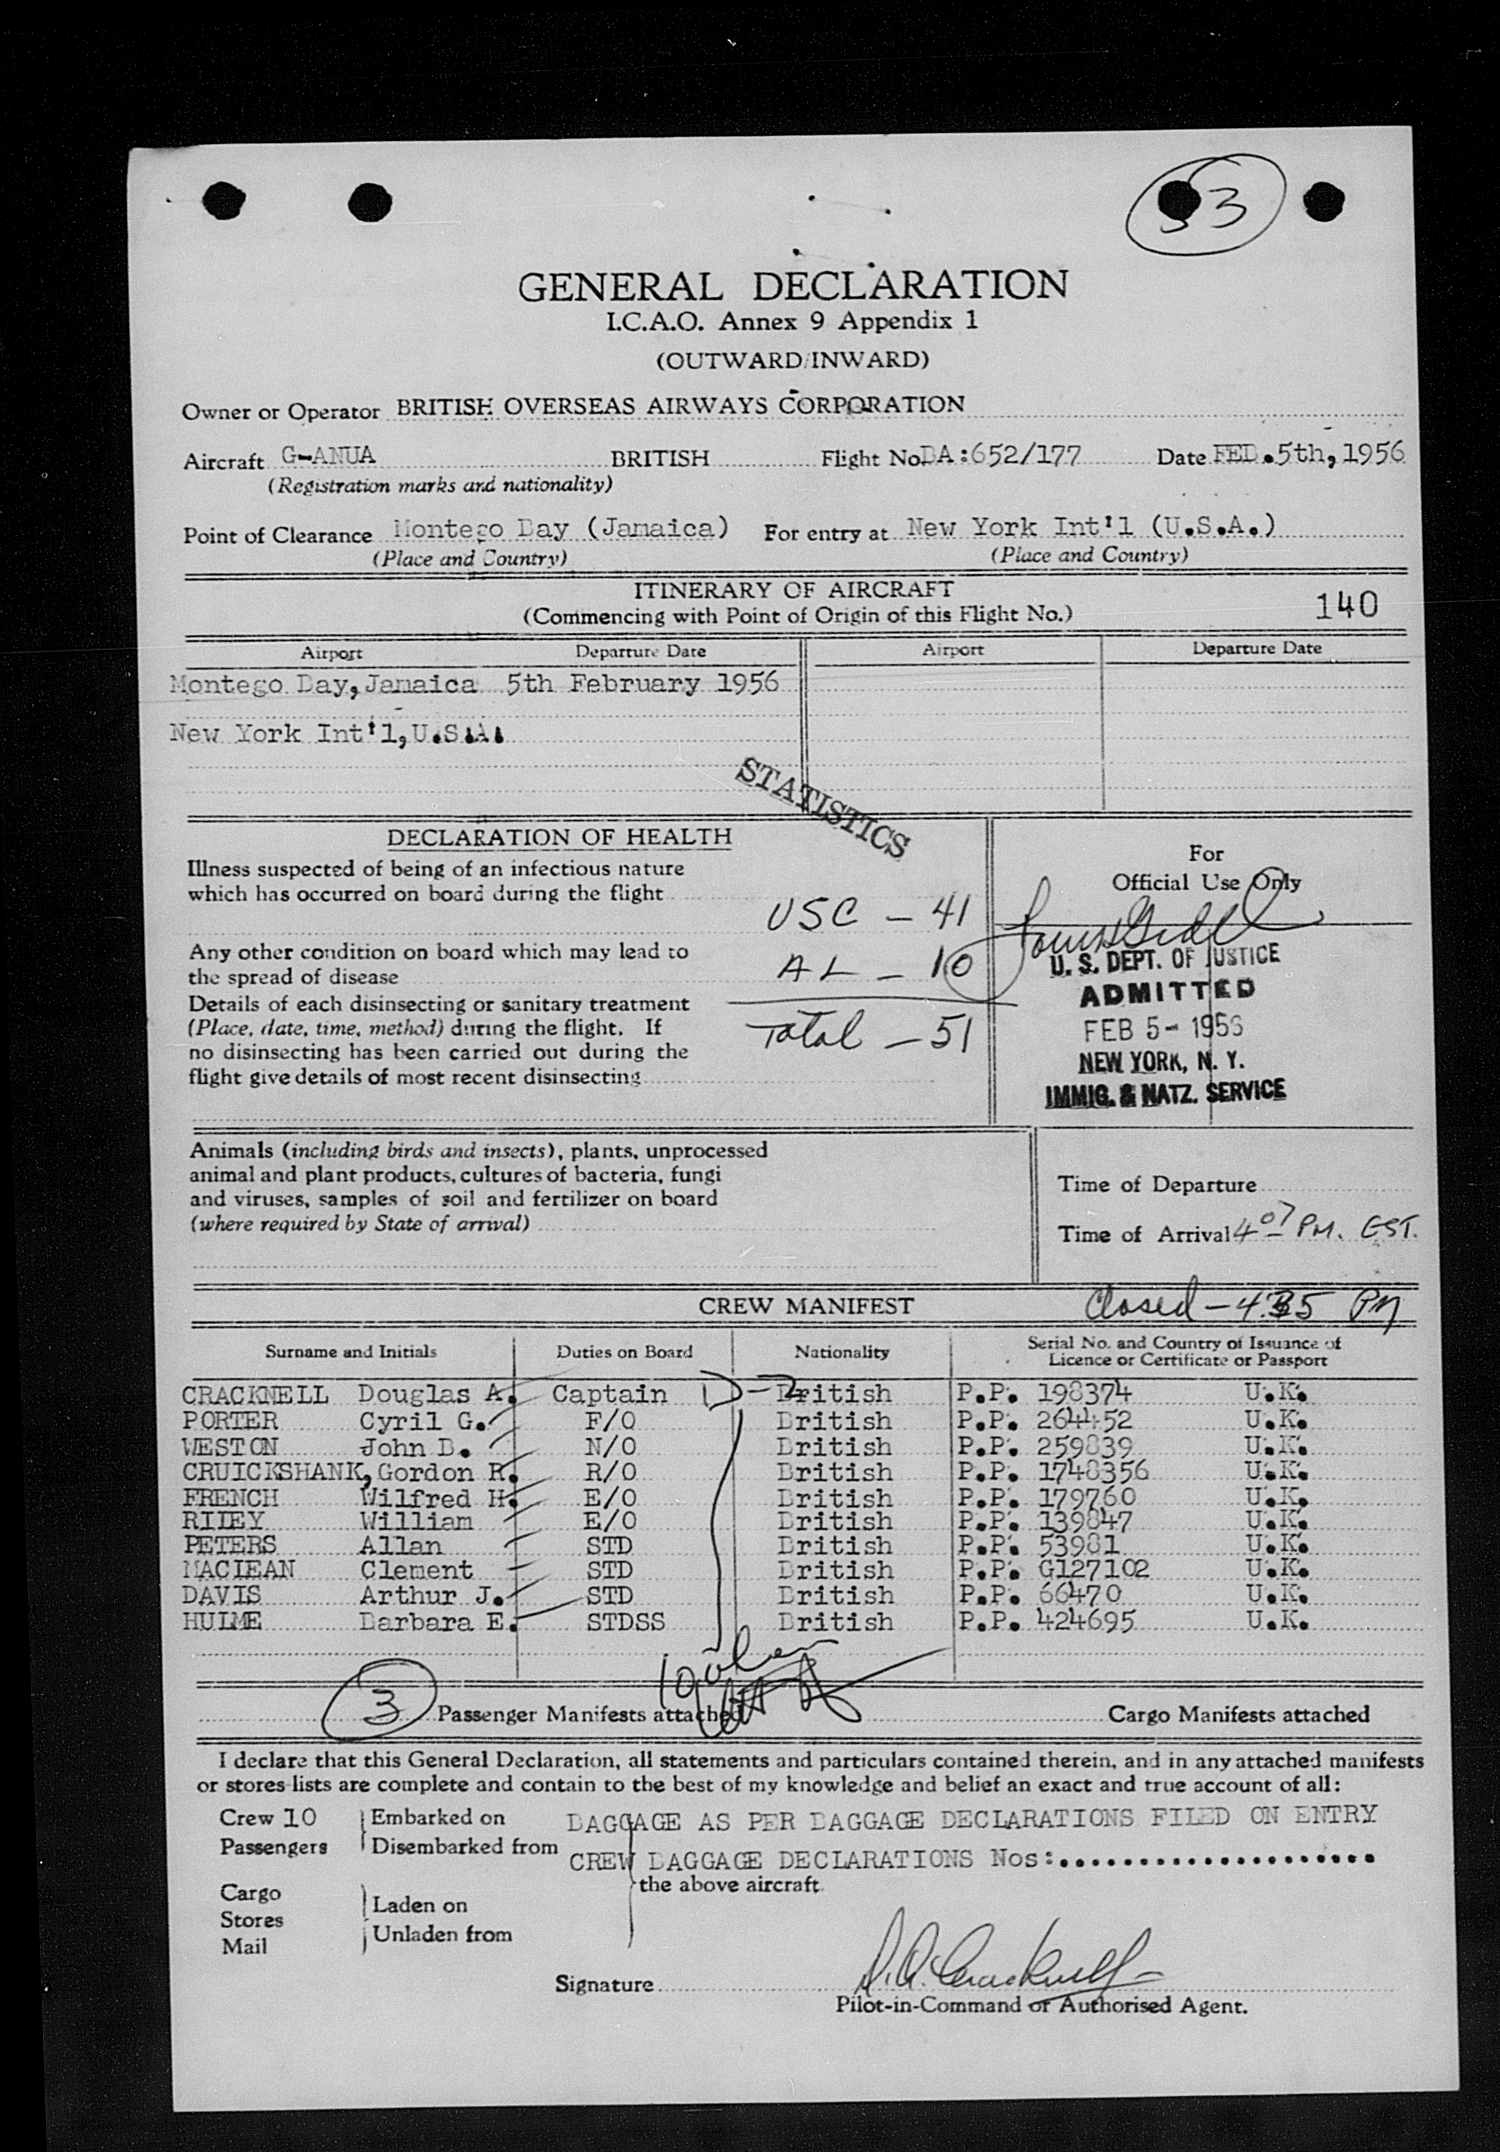 53
GENERAL DECLARATION
I.C.A.O. Annex 9 Appendix 1
(OUTWARD/INWARD)
Owner or Operator BRITISH OVERSEAS AIRWAYS CORPORATION
Aircraft G-ANUA BRITISH Flight No. BA:652/177 Date FEB.5th,1956
(Registration marks and nationality)
Point of Clearance Montego Bay (Jamaica) For entry at New York Int'l (U.S.A.)
(Place and Country) (Place and Country)
ITINERARY OF AIRCRAFT
(Commencing with Point of Origin of this Flight No.) 140
Airport Departure Date Airport Departure Date
Montego Bay, Jamaica 5th February 1956
New York Int'l, U.S.A.
STATISTICS
DECLARATION OF HEALTH
Illness suspected of being of an infectious nature
which has occurred on board during the flight
Any other condition on board which may lead to
the spread of disease
Details of each disinsecting or sanitary treatment
(Place, date, time, method) during the flight. If
no disinsecting has been carried out during the
flight give details of most recent disinsecting
USC - 41
AL - 10
Total - 51
For
Official Use Only
U. S. DEPT. OF JUSTICE
ADMITTED
FEB 5- 1956
NEW YORK, N. Y.
IMMIG. & NATZ. SERVICE
Animals (including birds and insects), plants, unprocessed
animal and plant products, cultures of bacteria, fungi
and viruses, samples of soil and fertilizer on board
(where required by State of arrival)
Time of Departure
Time of Arrival 4 07 PM. EST.
CREW MANIFEST Closed - 4.35 PM
Surname and Initials Duties on Board Nationality Serial No. and Country of Issuance of
Licence or Certificate or Passport
CRACKNELL Douglas A. Captain D-2 British P.P. 198374 U.K.
PORTER Cyril G. F/O British P.P. 264452 U.K.
WESTON John B. N/O British P.P. 259839 U.K.
CRUICKSHANK, Gordon R. R/O British P.P. 1748356 U.K.
FRENCH Wilfred H. E/O British P.P. 179760 U.K.
RILEY William E/O British P.P. 139847 U.K.
PETERS Allan STD British P.P. 53981 U.K.
MACLEAN Clement STD British P.P. G127102 U.K.
DAVIS Arthur J. STD British P.P. 66470 U.K.
HULME Barbara E. STDSS British P.P. 424695 U.K.
3 Passenger Manifests attached Cargo Manifests attached
I declare that this General Declaration, all statements and particulars contained therein, and in any attached manifests
or stores lists are complete and contain to the best of my knowledge and belief an exact and true account of all:
Crew 10 Embarked on BAGGAGE AS PER BAGGAGE DECLARATIONS FILED ON ENTRY
Passengers Disembarked from CREW BAGGAGE DECLARATIONS Nos:....................
the above aircraft
Cargo Laden on
Stores
Mail Unladen from
Signature D.A. Cracknell
Pilot-in-Command or Authorised Agent.